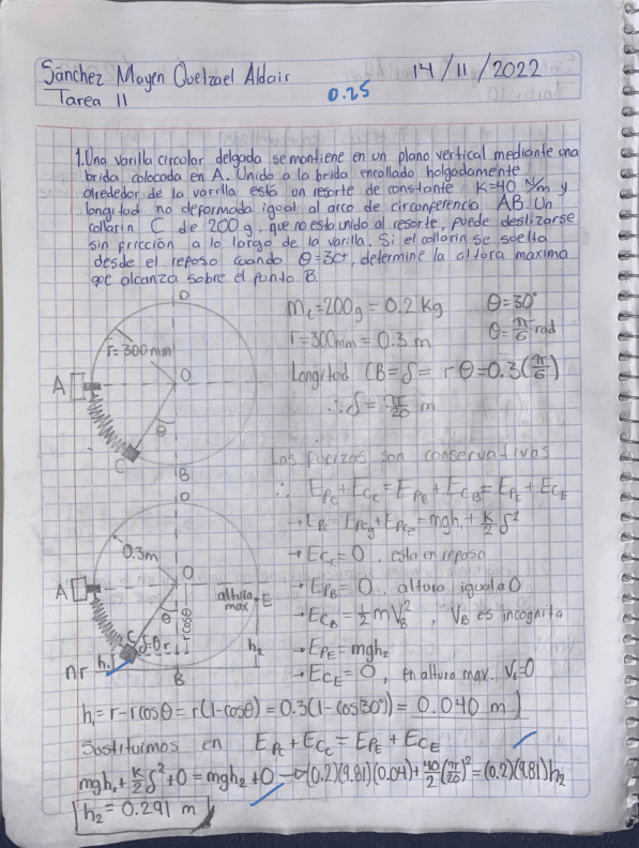 Sánchez Mayen Quetzael Aldair 14/11/2022
Tarea 11 0.25
1. Una varilla circular delgada se mantiene en un plano vertical mediante una
brida colocada en A. Unido a la brida enrollado holgadamente
alrededor de la varilla está un resorte de constante K=40 N/m y
longitud no deformada igual al arco de circonferencia AB. Un
collarin C de 200g, que no esta unido al resorte, puede deslizarse
sin fricción a lo largo de la varilla. Si el collarin se suelta
desde el reposo cuando θ=30°, determine la altura maxima
que alcanza sobre el punto B.
D
r=300mm
A
O
θ
C
B
m_c=200g=0.2 Kg θ=30°
r=300mm=0.3 m θ=π/6 rad
Longitud CB=δ= rθ=0.3(π/6)
∴ δ=π/20 m
Las fuerzas son conservativas
∴ E_Pc+E_Cc=E_PE+E_CB=E_PE+E_CE
→E_Pc=E_Pcg+E_Pce=mgh₁+K/2 δ²
→E_Cc=0, esta en reposo
→E_PB=0, altura igual a 0
→E_CB=½mV_B², V_B es incognita
→E_PE=mgh₂
→E_CE=0, en altura max. V_E=0
D
0.3m
A
O
altura max
E
θ
rcosθ
C
δ=θr
h₁
h₂
nr
B
h₁=r-rcosθ=r(1-cosθ)=0.3(1-cos(30°))=0.040 m
Sustituimos en E_Pc+E_Cc=E_PE+E_CE
mgh₁+K/2 δ²+0=mgh₂+0→(0.2)(9.81)(0.04)+40/2(π/20)²=(0.2)(9.81)h₂
h₂=0.291 m